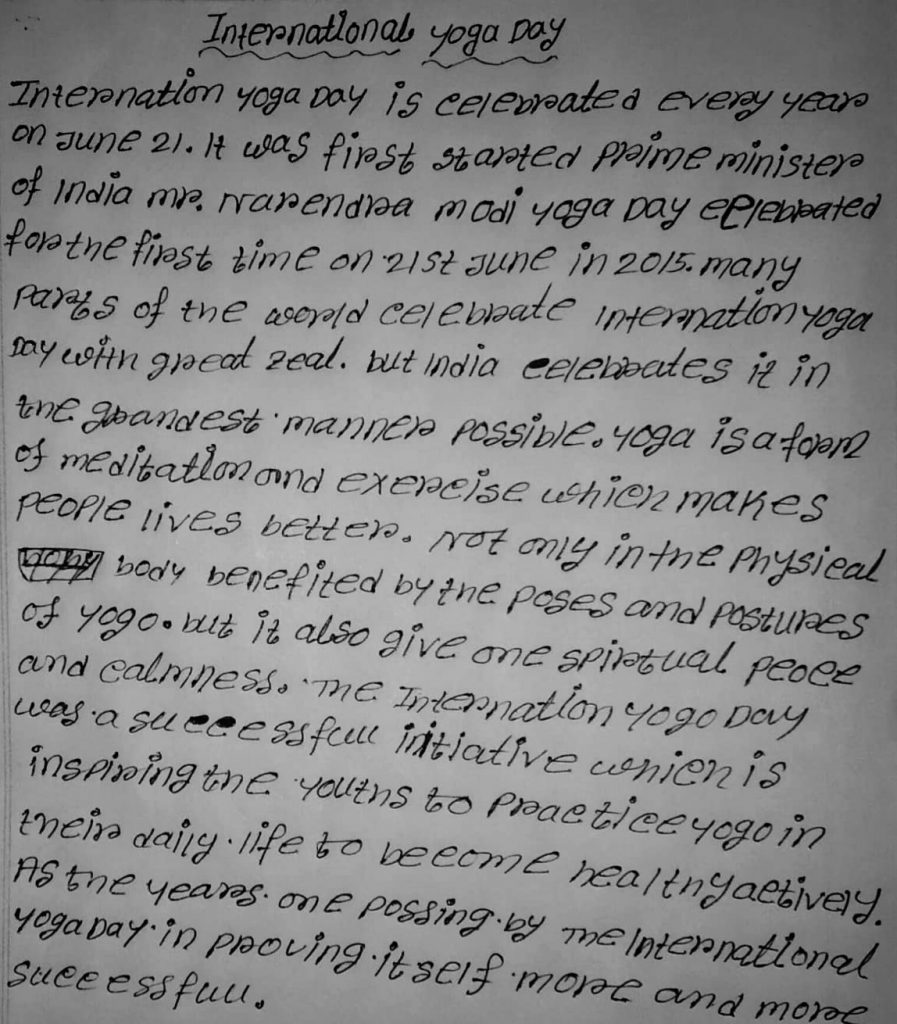 International yoga Day
Internation yoga Day is celebrated every year
on June 21. It was first started prime minister
of India mr. Narendra modi yoga Day celebrated
for the first time on 21st June in 2015. many
parts of the world celebrate internation yoga
Day with great zeal. but India celebrates it in
the grandest manner possible. yoga is a form
of meditation and exercise which makes
people lives better. Not only in the physical
body benefited by the poses and postures
of yogo. but it also give one spirtual peace
and calmness. The Internation yogo Day
was a successfull initiative which is
inspiring the youths to practice yogo in
their daily life to become healthy actively.
As the years one possing by The International
yoga Day in proving itself more and more
successfull.